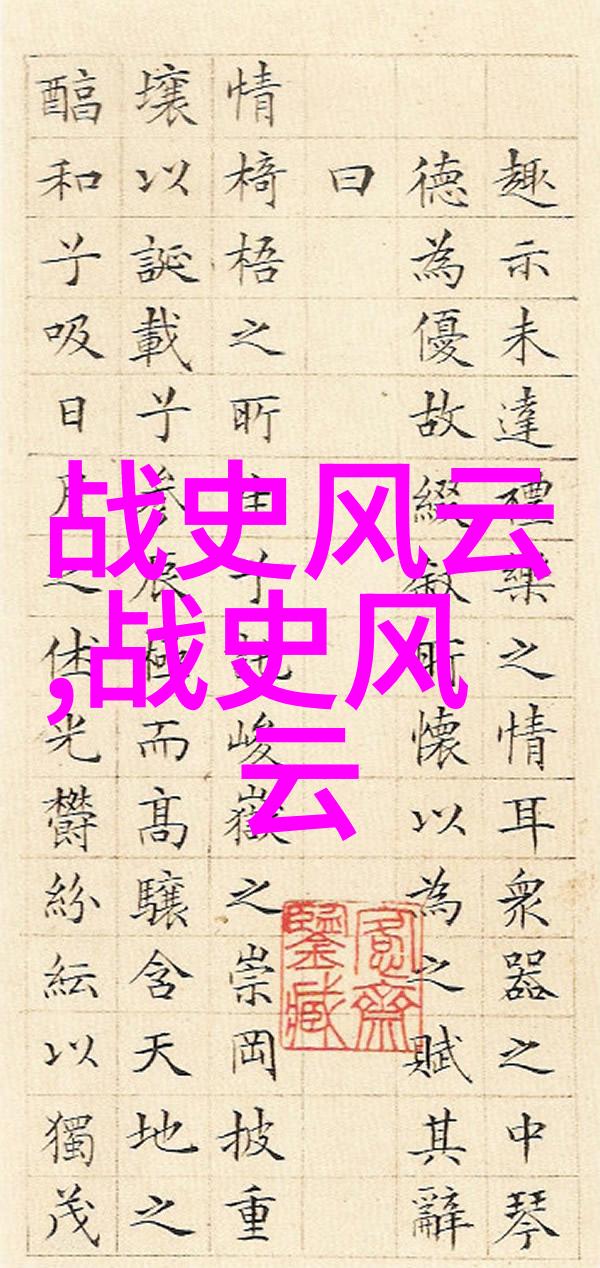 趣示未達禮樂之情耳衆器之中琴
德為優故綴敘所懷以為之賦其辭
曰
情椅梧之所生兮託峻嶽之崇岡披重
壤以誕載兮參辰極而高驤含天地之
醕和兮吸日月之休光鬱紛紜以獨茂
战史风云
,战史风
云
愙齋
鑒藏